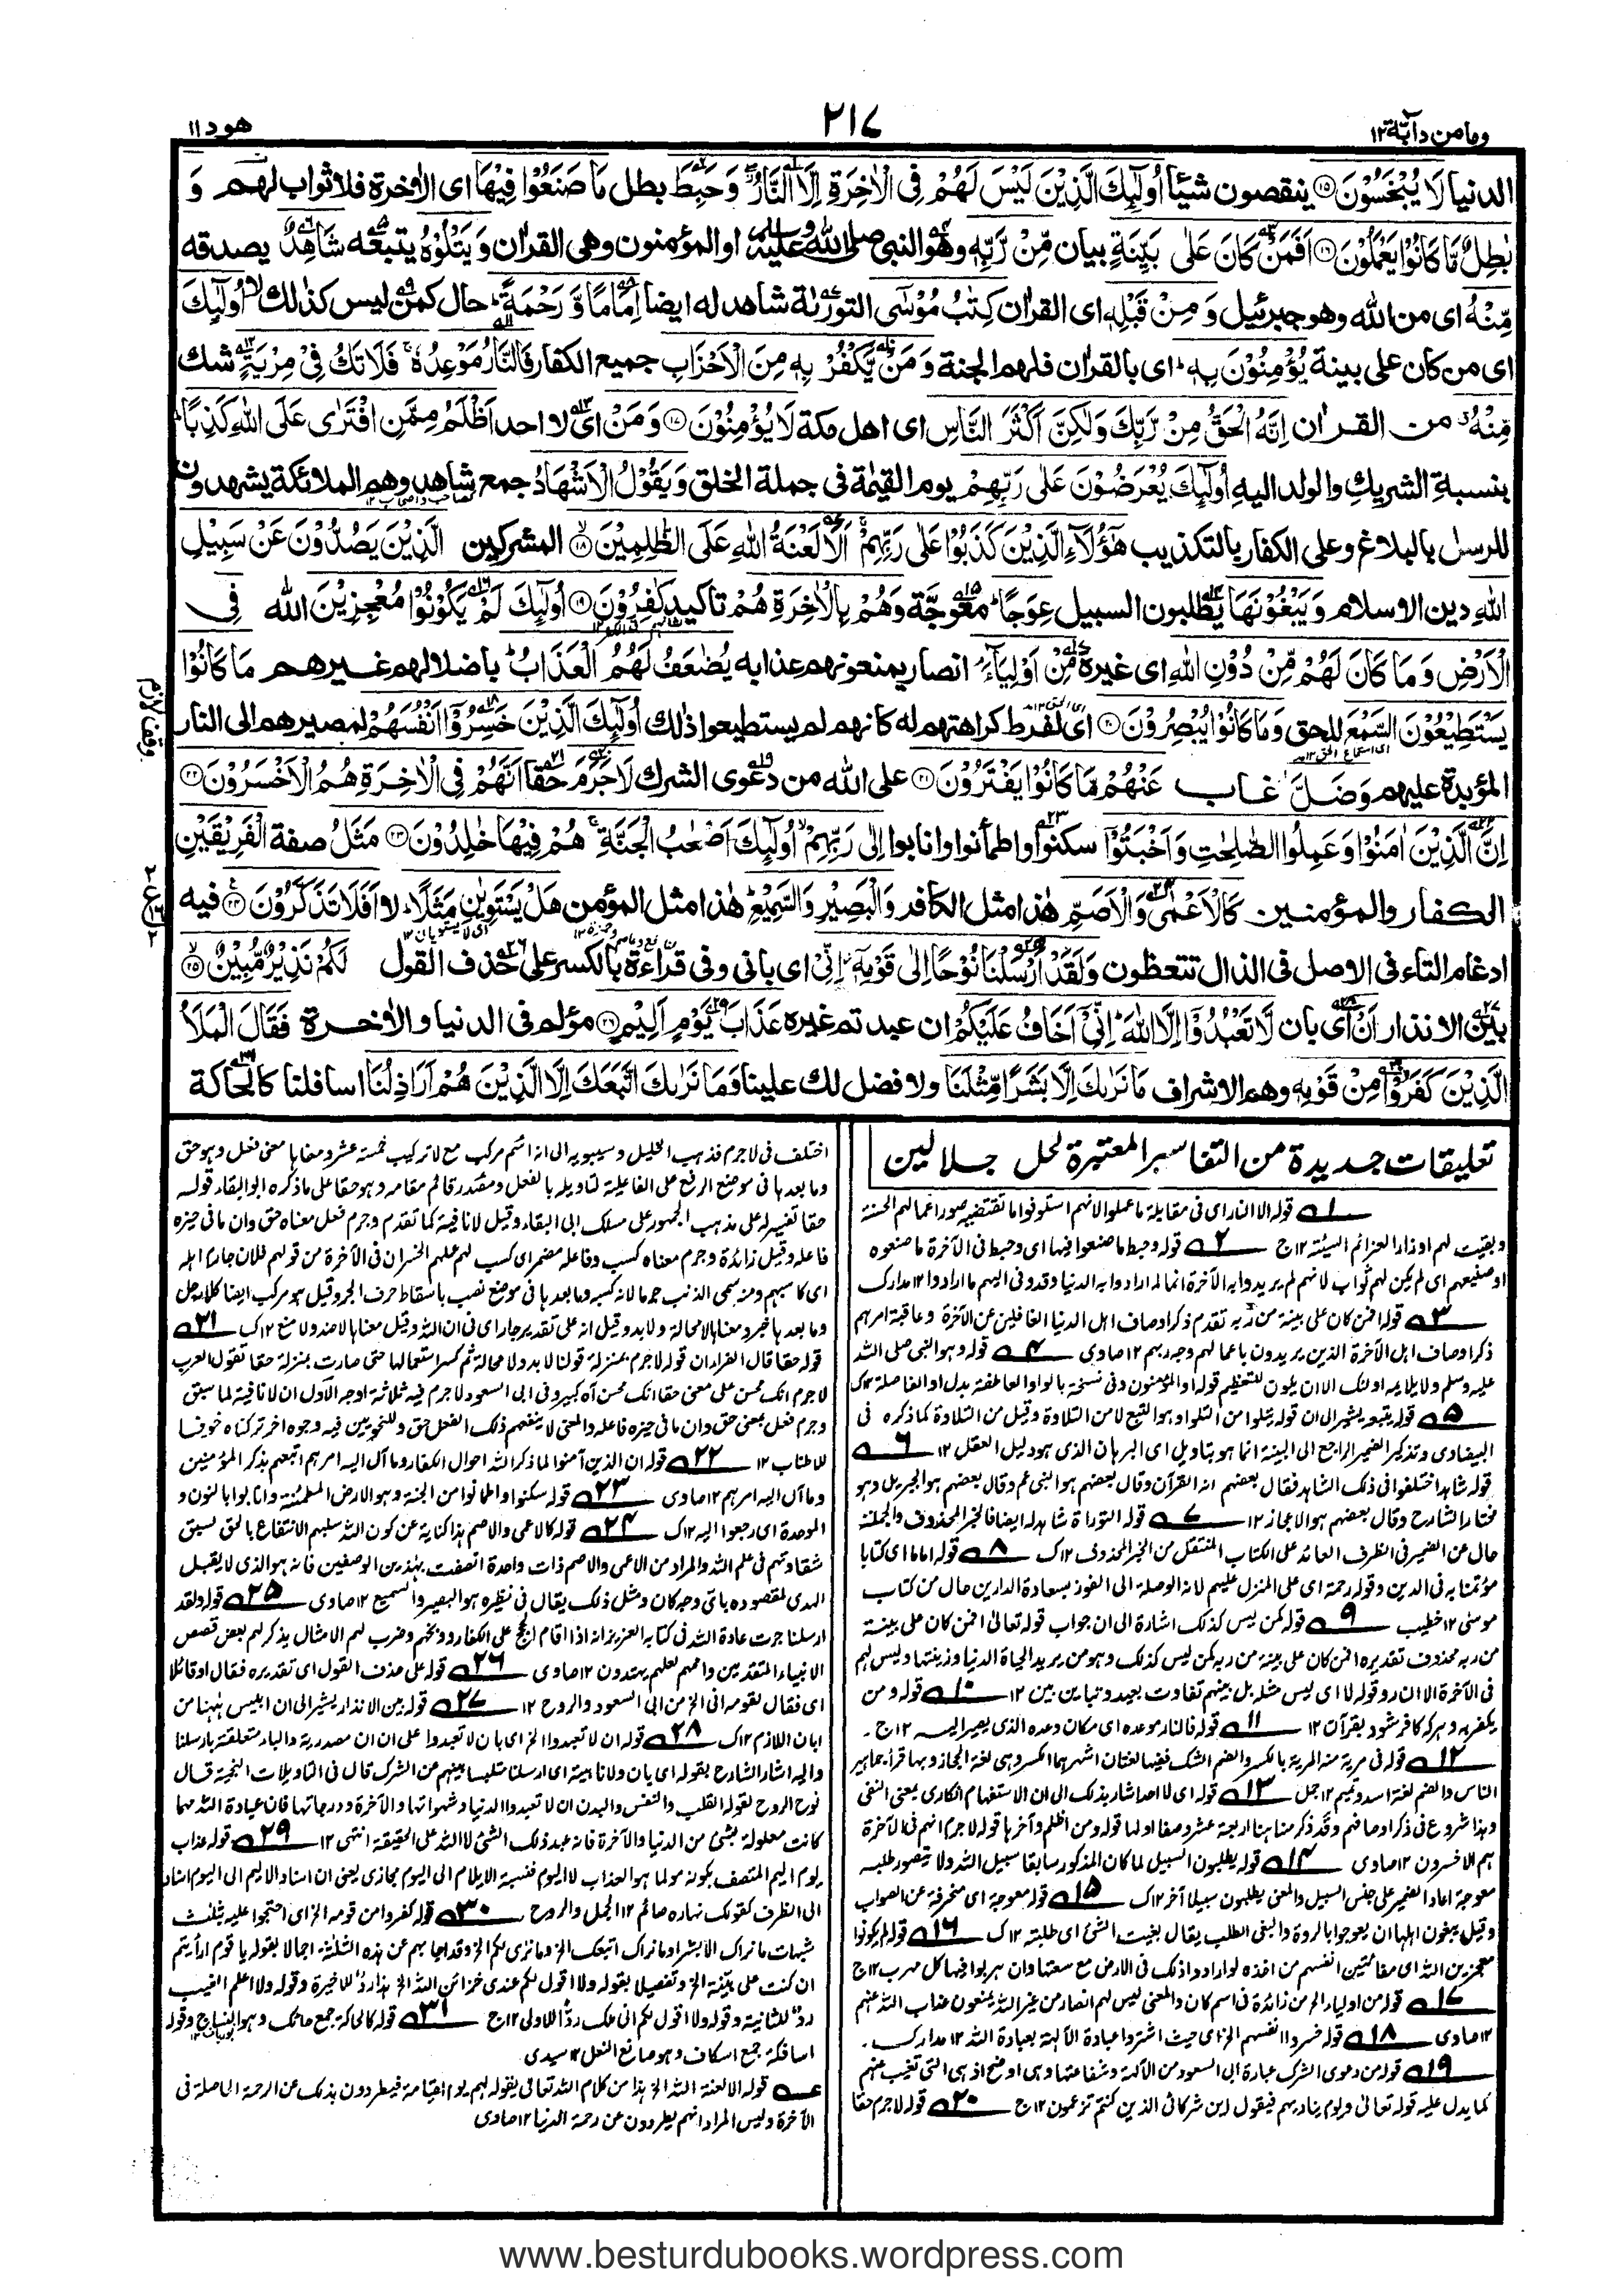 وما من دآبّة ١٢
٢١٧
هود ١١
الدنيا لَا يُبْخَسُوْنَ ⑮ ينقصون شيئا أُولٰٓئِكَ الَّذِيْنَ لَيْسَ لَهُمْ فِى الْاٰخِرَةِ اِلَّا النَّارُ وَحَبِطَ بطل مَا صَنَعُوْا فِيْهَا اى الاٰخرة فلا ثواب لهم وَ
بٰطِلٌ مَّا كَانُوْا يَعْمَلُوْنَ ⑯ اَفَمَنْ كَانَ عَلٰى بَيِّنَةٍ بيان مِّنْ رَّبِّهٖ وهو النبى صلى الله عليه او المؤمنون وهى القراٰن وَيَتْلُوْهُ يتبعه شَاهِدٌ يصدقه
مِّنْهُ اى من الله وهو جبرئيل وَمِنْ قَبْلِهٖ اى القراٰن كِتٰبُ مُوْسٰى التورٰىة شاهد له ايضا اِمَامًا وَّرَحْمَةً حال كمن ليس كذلك لا اُولٰٓئِكَ
اى من كان على بينة يُؤْمِنُوْنَ بِهٖ اى بالقراٰن فلهم الجنة وَمَنْ يَّكْفُرْ بِهٖ مِنَ الْاَحْزَابِ جميع الكفار فَالنَّارُ مَوْعِدُهٗ فَلَا تَكُ فِىْ مِرْيَةٍ شك
مِّنْهُ من القراٰن اِنَّهُ الْحَقُّ مِنْ رَّبِّكَ وَلٰكِنَّ اَكْثَرَ النَّاسِ اى اهل مكة لَا يُؤْمِنُوْنَ ⑰ وَمَنْ اى لا احد اَظْلَمُ مِمَّنِ افْتَرٰى عَلَى اللهِ كَذِبًا
بنسبة الشريك والولد اليه اُولٰٓئِكَ يُعْرَضُوْنَ عَلٰى رَبِّهِمْ يوم القيٰمة فى جملة الخلق وَيَقُوْلُ الْاَشْهَادُ جمع شاهد وهم الملائكة يشهدون
للرسل بالبلاغ وعلى الكفار بالتكذيب هٰٓؤُلَآءِ الَّذِيْنَ كَذَبُوْا عَلٰى رَبِّهِمْ اَلَا لَعْنَةُ اللهِ عَلَى الظّٰلِمِيْنَ ⑱ المشركين الَّذِيْنَ يَصُدُّوْنَ عَنْ سَبِيْلِ
اللهِ دين الاسلام وَيَبْغُوْنَهَا يطلبون السبيل عِوَجًا معوجّة وَهُمْ بِالْاٰخِرَةِ هُمْ تاكيد كٰفِرُوْنَ ⑲ اُولٰٓئِكَ لَمْ يَكُوْنُوْا مُعْجِزِيْنَ الله فِى
الْاَرْضِ وَمَا كَانَ لَهُمْ مِّنْ دُوْنِ اللهِ اى غيره مِنْ اَوْلِيَآءَ انصار يمنعونهم عذابه يُضٰعَفُ لَهُمُ الْعَذَابُ باضلالهم غيرهم مَا كَانُوْا
يَسْتَطِيْعُوْنَ السَّمْعَ للحق وَمَا كَانُوْا يُبْصِرُوْنَ ⑳ اى لفرط كراهتهم له كانهم لم يستطيعوا ذٰلك اُولٰٓئِكَ الَّذِيْنَ خَسِرُوْٓا اَنْفُسَهُمْ لمصيرهم الى النار
المؤبدة عليهم وَضَلَّ غاب عَنْهُمْ مَّا كَانُوْا يَفْتَرُوْنَ ㉑ على الله من دعوى الشرك لَا جَرَمَ حقا اَنَّهُمْ فِى الْاٰخِرَةِ هُمُ الْاَخْسَرُوْنَ ㉒
اِنَّ الَّذِيْنَ اٰمَنُوْا وَعَمِلُوا الصّٰلِحٰتِ وَاَخْبَتُوْٓا سكنوا واطمأنوا وانابوا اِلٰى رَبِّهِمْ اُولٰٓئِكَ اَصْحٰبُ الْجَنَّةِ هُمْ فِيْهَا خٰلِدُوْنَ ㉓ مَثَلُ صفة الْفَرِيْقَيْنِ
الكفار والمؤمنين كَالْاَعْمٰى وَالْاَصَمِّ هٰذا مثل الكافر وَالْبَصِيْرِ وَالسَّمِيْعِ هٰذا مثل المؤمن هَلْ يَسْتَوِيٰنِ مَثَلًا لا اَفَلَا تَذَكَّرُوْنَ ㉔ فيه
ادغام التاء فى الاصل فى الذال تتعظون وَلَقَدْ اَرْسَلْنَا نُوْحًا اِلٰى قَوْمِهٖٓ اِنِّىْ اى بانى وفى قراءة بالكسر على حذف القول لَكُمْ نَذِيْرٌ مُّبِيْنٌ ㉕
بيّن الانذار اَنْ اى بان لَّا تَعْبُدُوْٓا اِلَّا اللهَ اِنِّىْٓ اَخَافُ عَلَيْكُمْ ان عبدتم غيره عَذَابَ يَوْمٍ اَلِيْمٍ ㉖ مؤلم فى الدنيا والاٰخرة فَقَالَ الْمَلَاُ
الَّذِيْنَ كَفَرُوْا مِنْ قَوْمِهٖ وهم الاشراف مَا نَرٰىكَ اِلَّا بَشَرًا مِّثْلَنَا ولا فضل لك علينا وَمَا نَرٰىكَ اتَّبَعَكَ اِلَّا الَّذِيْنَ هُمْ اَرَاذِلُنَا اسافلنا كالحاكة
وقف لازم
تعليقات جديدة من التفاسير المعتبرة لحل جلالين
١ قوله الا النار اى فى مقابلة ما عملوا لانهم استوفوا ما تقتضيه صور اعمالهم الحسنة
وبقيت لهم اوزار العزائم السيئة ١٢ ج ٢ قوله وحبط ما صنعوا فيها اى وحبط فى الآخرة ما صنعوه
او صنيعهم اى لم يكن لهم ثواب لانهم لم يريدوا به الآخرة انما ارادوا به الدنيا وقد وفى اليهم ما ارادوا ١٢ مدارك
٣ قوله افمن كان على بينة من ربه تقدم ذكر اوصاف اهل الدنيا الغافلين عن الآخرة وعاقبة امرهم
ذكر اوصاف اهل الآخرة الذين يريدون باعمالهم وجه ربهم ١٢ صاوى ٤ قوله وهو النبى صلى الله
عليه وسلم ولا يلايمه اولئك الا ان يكون للتعظيم قوله او المؤمنون وفى نسخة بالواو العاطفة بدل او الفاصلة ١٢ ك
٥ قوله يتبعه يشير الى ان قوله يتلوا من التلو او هو التبع لا من التلاوة وقيل من التلاوة كما ذكره فى
البيضاوى وتذكير الضمير الراجع الى البينة انما هو بتاويل اى البرهان الذى هو دليل العقل ١٢ ٦
قوله شاهد اختلفوا فى ذلك الشاهد فقال بعضهم انه القرآن وقال بعضهم هو النبى عم وقال بعضهم هو الجبريل وهو
مختار الشارح وقال بعضهم هو الاعجاز ١٢ ٧ قوله التوراة شاهد له ايضا فالخبر المحذوف والجملة
حال عن الضمير فى الظرف العائد على الكتاب المنتقل من الخبر المحذوف ١٢ ك ٨ قوله اماما اى كتابا
مؤتمنا به فى الدين وقوله رحمة اى على المنزل عليهم لانه الوصلة الى الفوز بسعادة الدارين حال من كتاب
موسى ١٢ خطيب ٩ قوله كمن ليس كذلك اشارة الى ان جواب قوله تعالى افمن كان على بينة
من ربه محذوف تقديره افمن كان على بينة من ربه كمن ليس كذلك وهو من يريد الحياة الدنيا وزينتها وليس لهم
فى الآخرة الا النار وقوله لا اى ليس مثله بل بينهم تفاوت بعيد وتباين بين ١٢ ١٠ قوله ومن
يكفر به وهر كه كافر شود بقرآن ١٢ ١١ قوله فالنار موعده اى مكان وعده الذى يصير اليه ١٢ ج۔
١٢ قوله فى مرية منه المرية بالكسر والضم الشك ففيها لغتان اشهرهما الكسر وهى لغة الحجاز وبها قرأ جماهير
الناس والضم لغة اسد وتميم ١٢ جمل ١٣ قوله اى لا احد اشار بذلك الى ان الاستفهام انكارى بمعنى النفى
وهذا شروع فى ذكر اوصافهم وقد ذكر منها هنا اربعة عشر وصفا اولها قوله ومن اظلم وآخرها قوله لا جرم انهم فى الآخرة
هم الاخسرون ١٢ صاوى ١٤ قوله يطلبون السبيل لما كان المذكور سابقا سبيل الله ولا يتصور طلبه
معوجة اعاد الضمير على جنس السبيل والمعنى يطلبون سبيلا آخر ١٢ ك ١٥ قوله معوجة اى منحرفة عن الصواب
وقيل يبغون اهلها ان يعوجوا بالردة والبغى الطلب يقال بغيت الشئ اى طلبته ١٢ ك ١٦ قوله لم يكونوا
معجزين الله اى مفائتين انفسهم من اخذه لو اراد ذلك فى الارض مع سعتها وان هربوا فيها كل مهرب ١٢ ج
١٧ قوله من اولياء الخ من زائدة فى اسم كان والمعنى ليس لهم انصار من غير الله يمنعون عذاب الله عنهم
١٢ صاوى ١٨ قوله خسروا انفسهم الخ اى حيث اشتروا عبادة الآلهة بعبادة الله ١٢ مدارك۔
١٩ قوله من دعوى الشرك عبارة ابى السعود من الآلهة وشفاعتها وهى اوضح اذ هى التى تغيب عنهم
كما يدل عليه قوله تعالى ويوم يناديهم فيقول اين شركائى الذين كنتم تزعمون ١٢ ج ٢٠ قوله لا جرم حقا
اختلف فى لا جرم فذهب الخليل وسيبويه الى انه اسم مركب مع لا تركيب خمسة عشر ومعناها معنى فعل وهو حق
وما بعدها فى موضع الرفع على الفاعلية لتاويله بالفعل ومقدر قائم مقامه وهو حقا على ما ذكره ابو البقاء قوله
حقا تفسير له على مذهب الجمهور على مسلك ابى البقاء وقيل لا نافية كما تقدم وجرم فعل معناه حق وان ما فى حيزه
فاعله وقيل زائدة وجرم معناه كسب وفاعله مضمر اى كسب لهم علمهم الخسران فى الآخرة من قولهم فلان جارم اهله
اى كاسبهم ومنه سمى الذنب جرما لانه كسبه وما بعدها فى موضع نصب باسقاط حرف الجر وقيل هو مركب ايضا كلا رجل
وما بعدها خبر ومعناها لا محالة ولا بد وقيل انه على تقدير جار اى فى ان الله وقيل معناها لا صد ولا منع ١٢ ك ٢١
قوله حقا قال الفراء ان قوله لا جرم بمنزلة قولنا لا بد ولا محالة ثم كسر استعمالها حتى صارت بمنزلة حقا تقول العرب
لا جرم انك محسن على معنى حقا انك محسن آه كبير وفى ابى السعود لا جرم فيه ثلاثة اوجه الاول ان لا نافية لما سبق
وجرم فعل بمعنى حق وان ما فى حيزه فاعله والمعنى لا ينفعهم ذلك الفعل حق وللنحويين فيه وجوه اخر تركناه خوفا
للاطناب ١٢ ٢٢ قوله ان الذين آمنوا لما ذكر الله احوال الكفار وما آل اليه امرهم اتبعهم بذكر المؤمنين
وما آل اليه امرهم ١٢ صاوى ٢٣ قوله سكنوا واطمأنوا من الخبتة وهو الارض المطمئنة وانابوا بالنون و
الموحدة اى رجعوا اليه ١٢ ك ٢٤ قوله كالاعمى والاصم هذا كناية عن كون الله سلبهم الانتفاع بالحق لسبق
شقاوتهم فى علم الله والمراد من الاعمى والاصم ذات واحدة اتصفت بهذين الوصفين فانه هو الذى لا يقبل
الهدى لمقصوده باى وجه كان ومثل ذلك يقال فى نظيره هو البصير والسميع ١٢ صاوى ٢٥ قوله ولقد
ارسلنا جرت عادة الله فى كتابه العزيز انه اذا اقام الحجج على الكفار ووبخهم وضرب لهم الامثال يذكر لهم بعض قصص
الانبياء المتقدمين واممهم لعلهم يهتدون ١٢ صاوى ٢٦ قوله على حذف القول اى تقديره فقال او قائلا
اى فقال لقومه انى الخ من ابى السعود والروح ١٢ ٢٧ قوله بين الانذار يشير الى ان ابليس ههنا من
ابان اللازم ١٢ ك ٢٨ قوله ان لا تعبدوا الخ اى بان لا تعبدوا على ان ان مصدرية والباء متعلقة بارسلنا
واليه اشار الشارح بقوله اى بان ولا ناهية اى ارسلنا متلبسا بنهيهم من الشرك قال فى التاويلات النجمية قال
نوح الروح لقومه القلب والنفس والبدن ان لا تعبدوا الدنيا وشهواتها والآخرة ودرجاتها فان عبادة الله مهما
كانت معلولة بشئ من الدنيا والآخرة فانه عبد ذلك الشئ لا الله على الحقيقة انتهى ١٢ ٢٩ قوله عذاب
يوم اليم المتصف بكونه مولما هو العذاب لا اليوم فنسبة الايلام الى اليوم مجازى يعنى ان اسناد الاليم الى اليوم اسناد
الى الظرف كقولك نهاره صائم ١٢ الجمل والروح ٣٠ قوله كفروا من قومه الخ اى احتجوا عليه بثلث
شبهات ما نراك الا بشرا وما نراك اتبعك الخ وما نرى لكم الخ وقد اجابهم عن هذه الثلثة اجمالا بقوله يا قوم ارأيتم
ان كنت على بينة الخ وتفصيلا بقوله ولا اقول لكم عندى خزائن الله الخ هذا رد للاخيرة وقوله ولا اعلم الغيب
رد للثانية وقوله ولا اقول لكم انى ملك رد الاولى ١٢ ج ٣١ قوله كالحاكة جمع حائك وهو النساج وقوله
اساكفة جمع اسكاف وهو صانع النعل ١٢ سيدى
عه قوله الا لعنة الله الخ هذا من كلام الله تعالى يقوله لهم يوم القيامة فيطردون بذلك عن الرحمة الحاصلة فى
الآخرة وليس المراد انهم يطردون عن رحمة الدنيا ١٢ صاوى
www.besturdubooks.wordpress.com